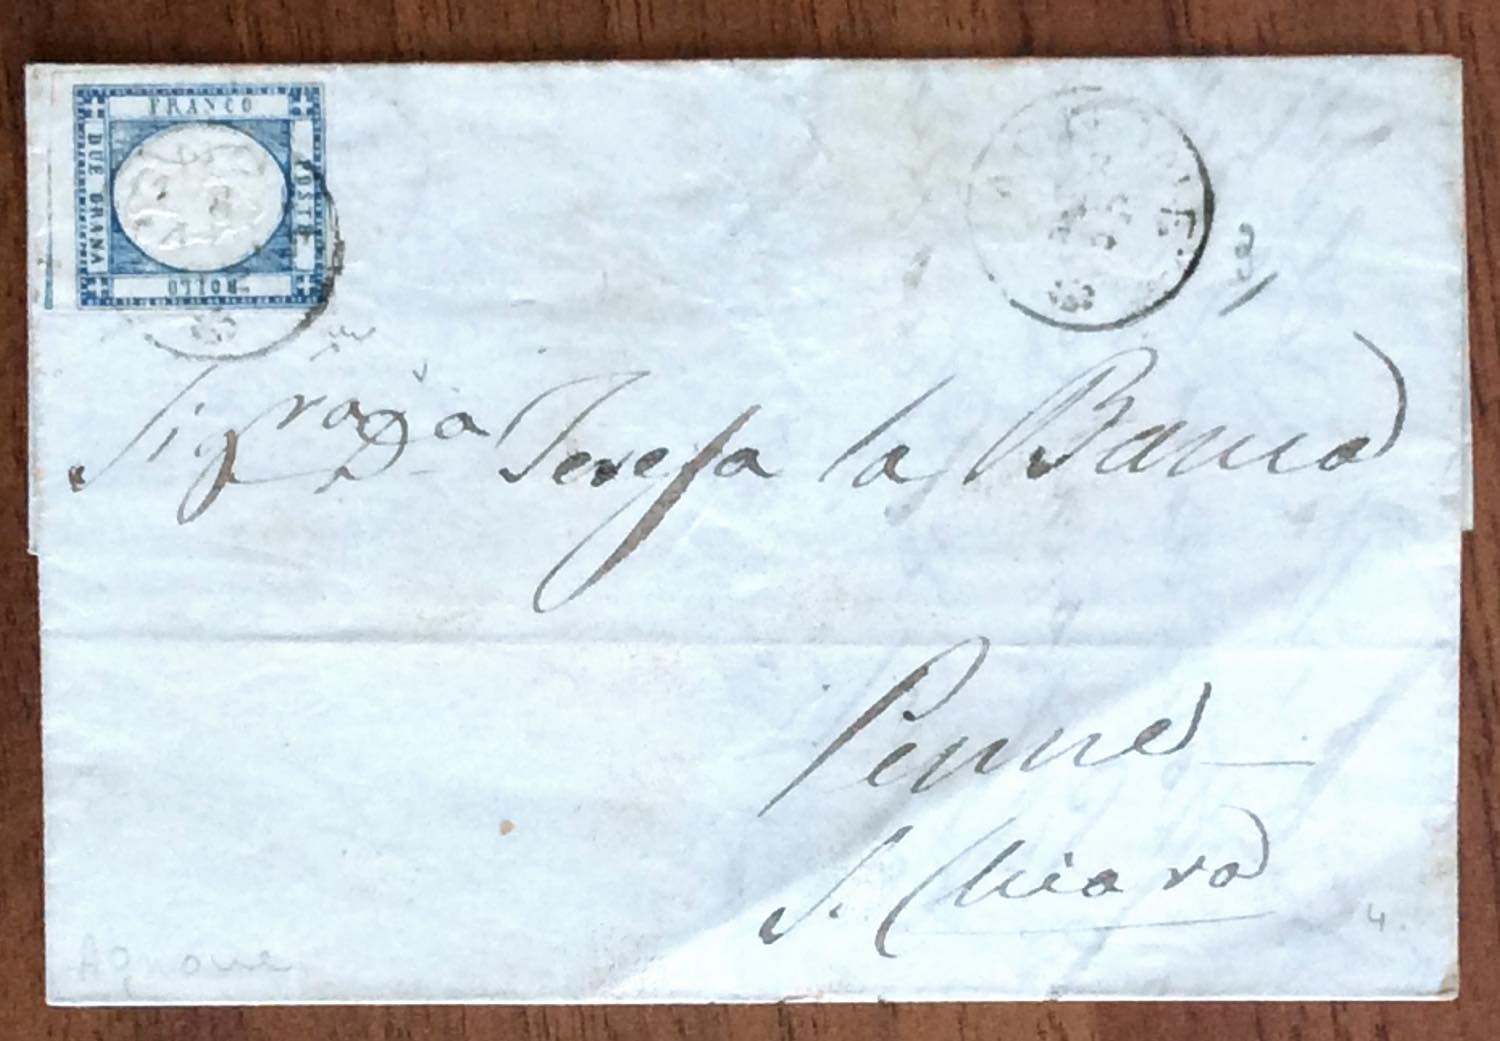 FRANCO
POSTE
DUE GRANA
BOLLO
AGNONE
3
Sig.ra D.a Teresa la Banca
Penne
S. Chiara
Agnone
4.